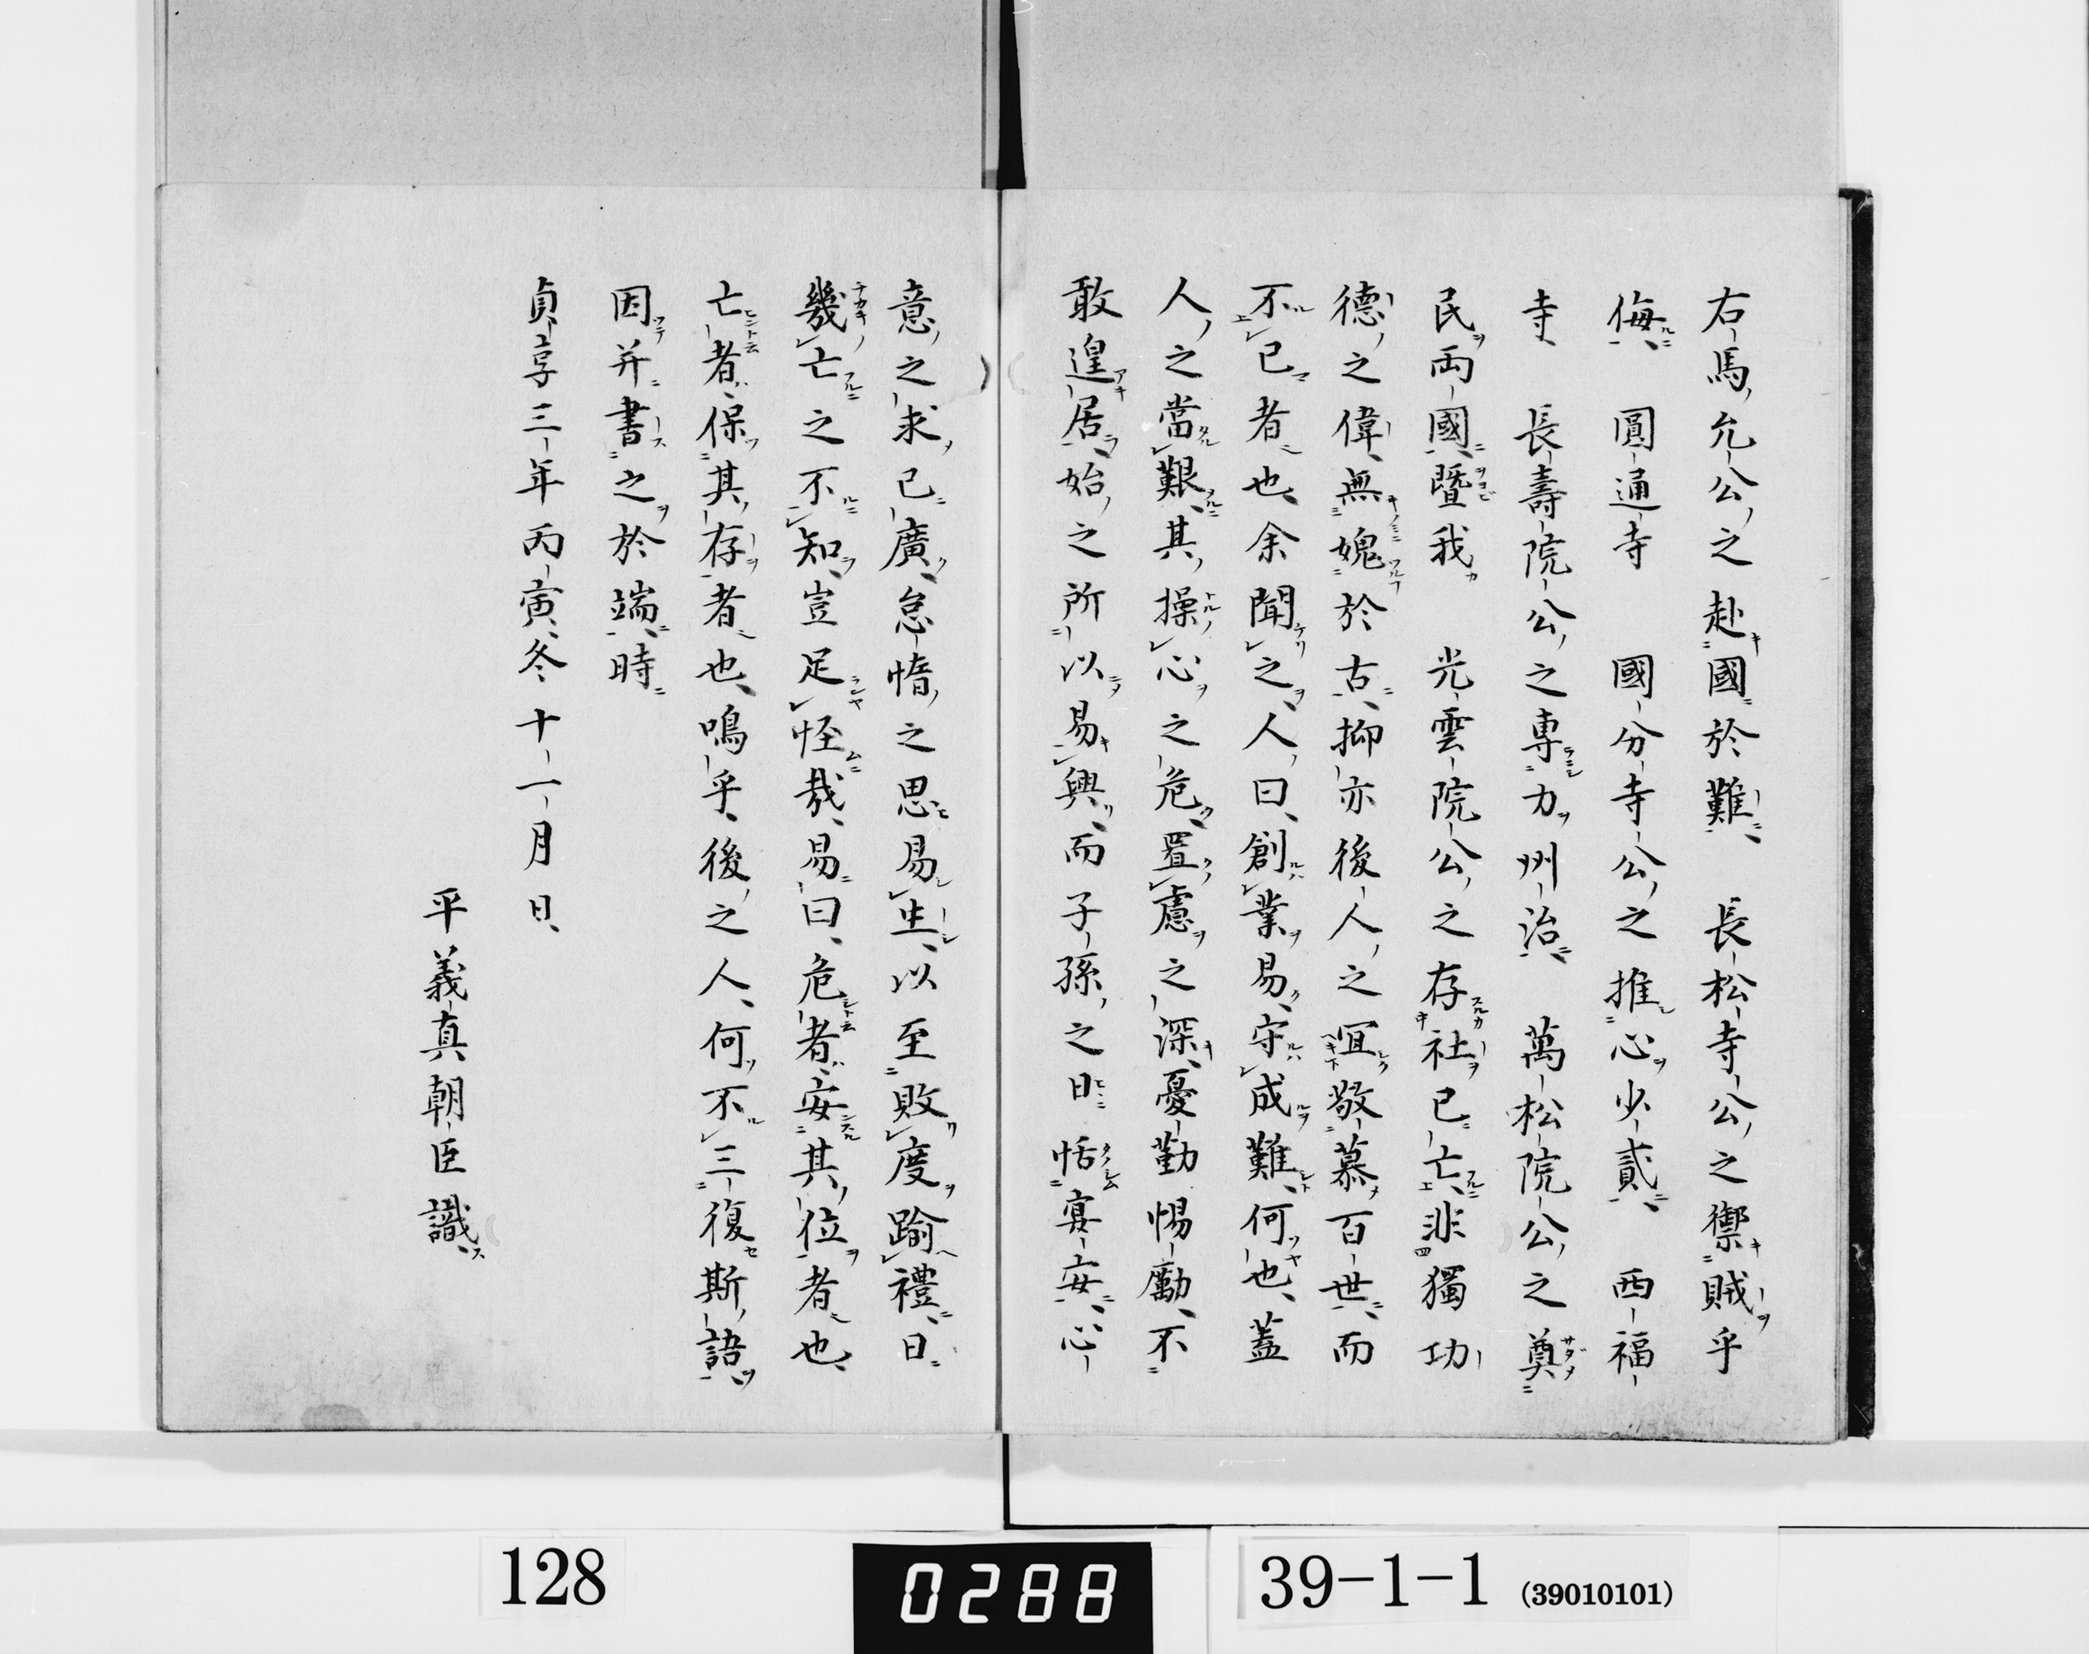 右馬允公之赴國於難　長松寺公之禦賊乎
侮　圓通寺　國分寺公之推心少貳　西福
寺　長壽院公之專力州治　萬松院公之奠
民両國暨我　光雲院公之存社已亡非獨功
德之偉無媿於古抑亦後人之宜敬慕百世而
不已者也余聞之人曰創業易守成難何也蓋
人之當艱其操心之危置慮之深憂勤惕勵不
敢遑居始之所以易興而子孫之日恬宴安心
意之求已廣怠惰之思易生以至敗度踰禮日
幾亡之不知豈足怪哉易曰危者安其位者也
亡者保其存者也嗚乎後之人何不三復斯語
因并書之於端時
貞享三年丙寅冬十一月日
平義真朝臣識
128
0288
39-1-1 (39010101)